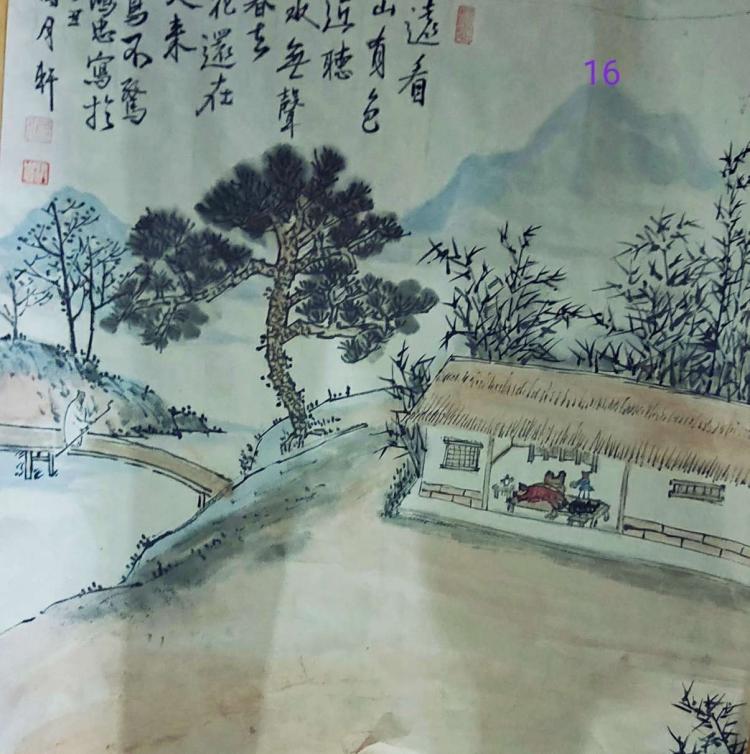 16
遠看
山有色
近聽
水無聲
春去
花還在
人来
鳥不驚
忠寫於
丑
月軒